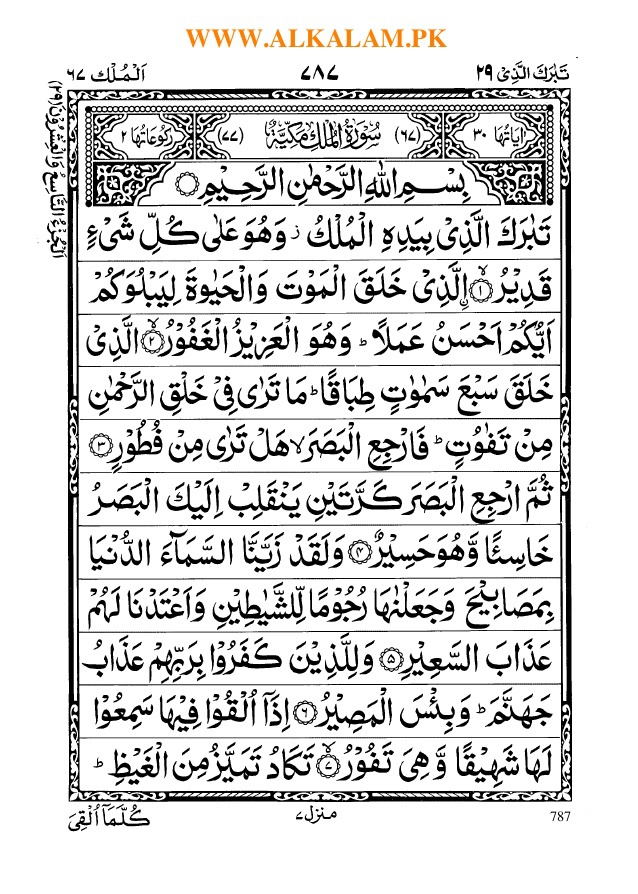 WWW.ALKALAM.PK
تَبٰرَكَ الَّذِیْ ۲۹
۷۸۷
اَلْمُلْك ۶۷
اَلْجُزْءُ التَّاسِعُ وَالْعِشْرُوْنَ (۲۹)
اٰیَاتُهَا ۳۰
(۶۷) سُوْرَةُ الْمُلْكِ مَكِّیَّةٌ (۷۷)
رُكُوْعَاتُهَا ۲
بِسْمِ اللّٰهِ الرَّحْمٰنِ الرَّحِیْمِ
تَبٰرَكَ الَّذِیْ بِیَدِهِ الْمُلْكُ ز وَهُوَ عَلٰی كُلِّ شَیْءٍ
قَدِیْرُ ۙ﴿۱﴾ اِ۟لَّذِیْ خَلَقَ الْمَوْتَ وَالْحَیٰوةَ لِیَبْلُوَكُمْ
اَیُّكُمْ اَحْسَنُ عَمَلًا ؕ وَهُوَ الْعَزِیْزُ الْغَفُوْرُ ۙ﴿۲﴾ الَّذِیْ
خَلَقَ سَبْعَ سَمٰوٰتٍ طِبَاقًا ؕ مَا تَرٰی فِیْ خَلْقِ الرَّحْمٰنِ
مِنْ تَفٰوُتٍ ؕ فَارْجِعِ الْبَصَرَ ۙ هَلْ تَرٰی مِنْ فُطُوْرٍ ﴿۳﴾
ثُمَّ ارْجِعِ الْبَصَرَ كَرَّتَیْنِ یَنْقَلِبْ اِلَیْكَ الْبَصَرُ
خَاسِئًا وَّهُوَ حَسِیْرٌ ﴿۴﴾ وَلَقَدْ زَیَّنَّا السَّمَآءَ الدُّنْیَا
بِمَصَابِیْحَ وَجَعَلْنٰهَا رُجُوْمًا لِّلشَّیٰطِیْنِ وَاَعْتَدْنَا لَهُمْ
عَذَابَ السَّعِیْرِ ﴿۵﴾ وَلِلَّذِیْنَ كَفَرُوْا بِرَبِّهِمْ عَذَابُ
جَهَنَّمَ ؕ وَبِئْسَ الْمَصِیْرُ ﴿۶﴾ اِذَاۤ اُلْقُوْا فِیْهَا سَمِعُوْا
لَهَا شَهِیْقًا وَّهِیَ تَفُوْرُ ۙ﴿۷﴾ تَكَادُ تَمَیَّزُ مِنَ الْغَیْظِ ؕ
787
منزل ۷
كُلَّمَاۤ اُلْقِیَ